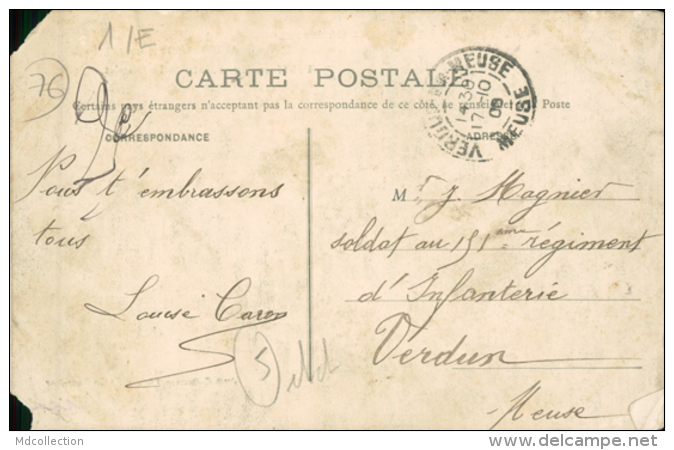 1/E
76
CARTE POSTALE
Certains pays étrangers n'acceptant pas la correspondance de ce côté, se renseigner à la Poste
CORRESPONDANCE
ADRESSE
VERDUN MEUSE
14 30
17 - 10
MEUSE
Nous t'embrassons
tous
Louise Caron
Mr J. Magnier
soldat au 151ème régiment
d'Infanterie
Verdun
Meuse
5
Mdcollection
www.delcampe.net